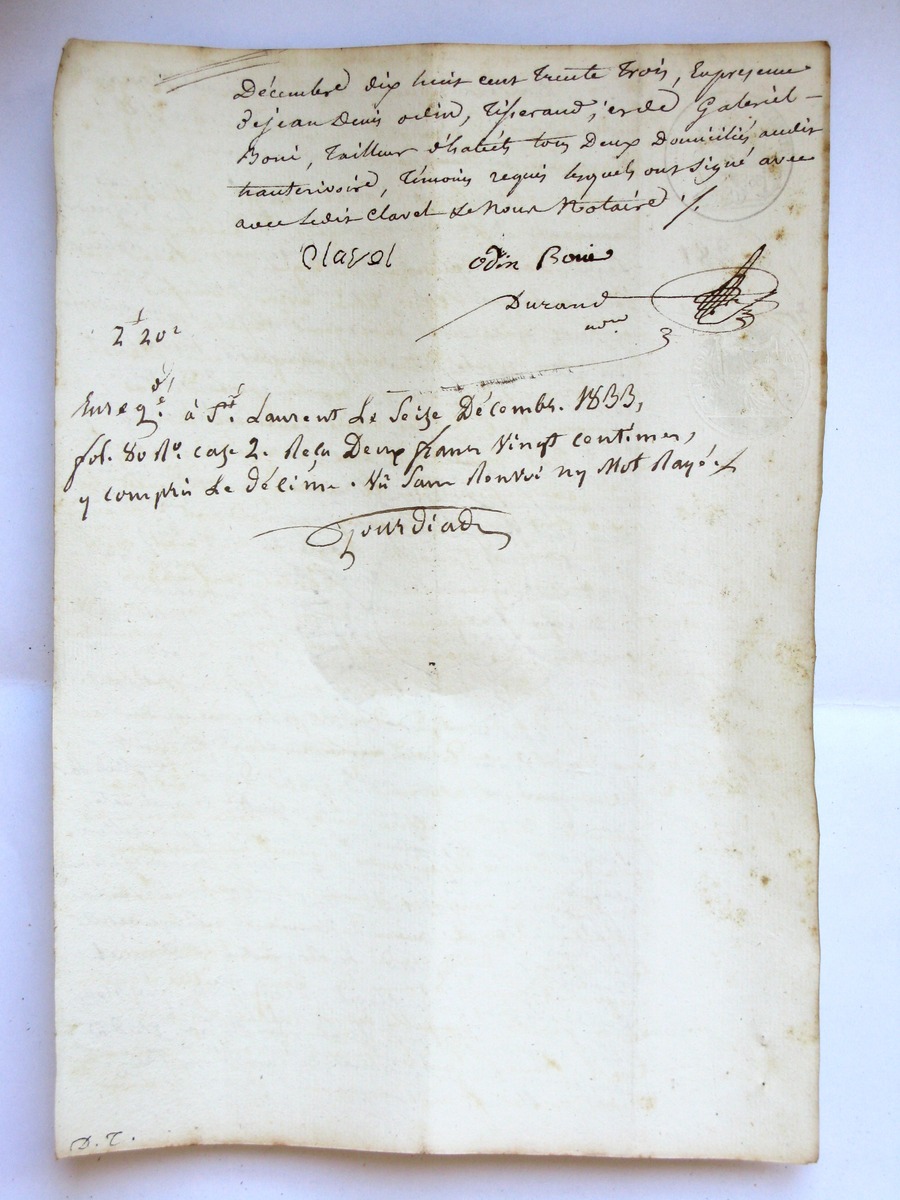 Décembre dix huit cent trente trois, En presence
de jean Denis odin, Tisserand, et de Gabriel
Boni, Tailleur d'habits tous Deux Domiciliés audit
hauterivoire, Témoins requis lesquels ont Signé avec
avec Ledit Clavel & Nous Notaire ./.
Clavel odin Boni
Durand
nore
2f 20c
Enregé. à St. Laurent Le Seize Décembre. 1833,
fol. 80 Ro. case 2. Reçu Deux francs Vingt centimes,
y compris Le décime. Vû Sans Renvoi ny Mot Rayé.
D. T.